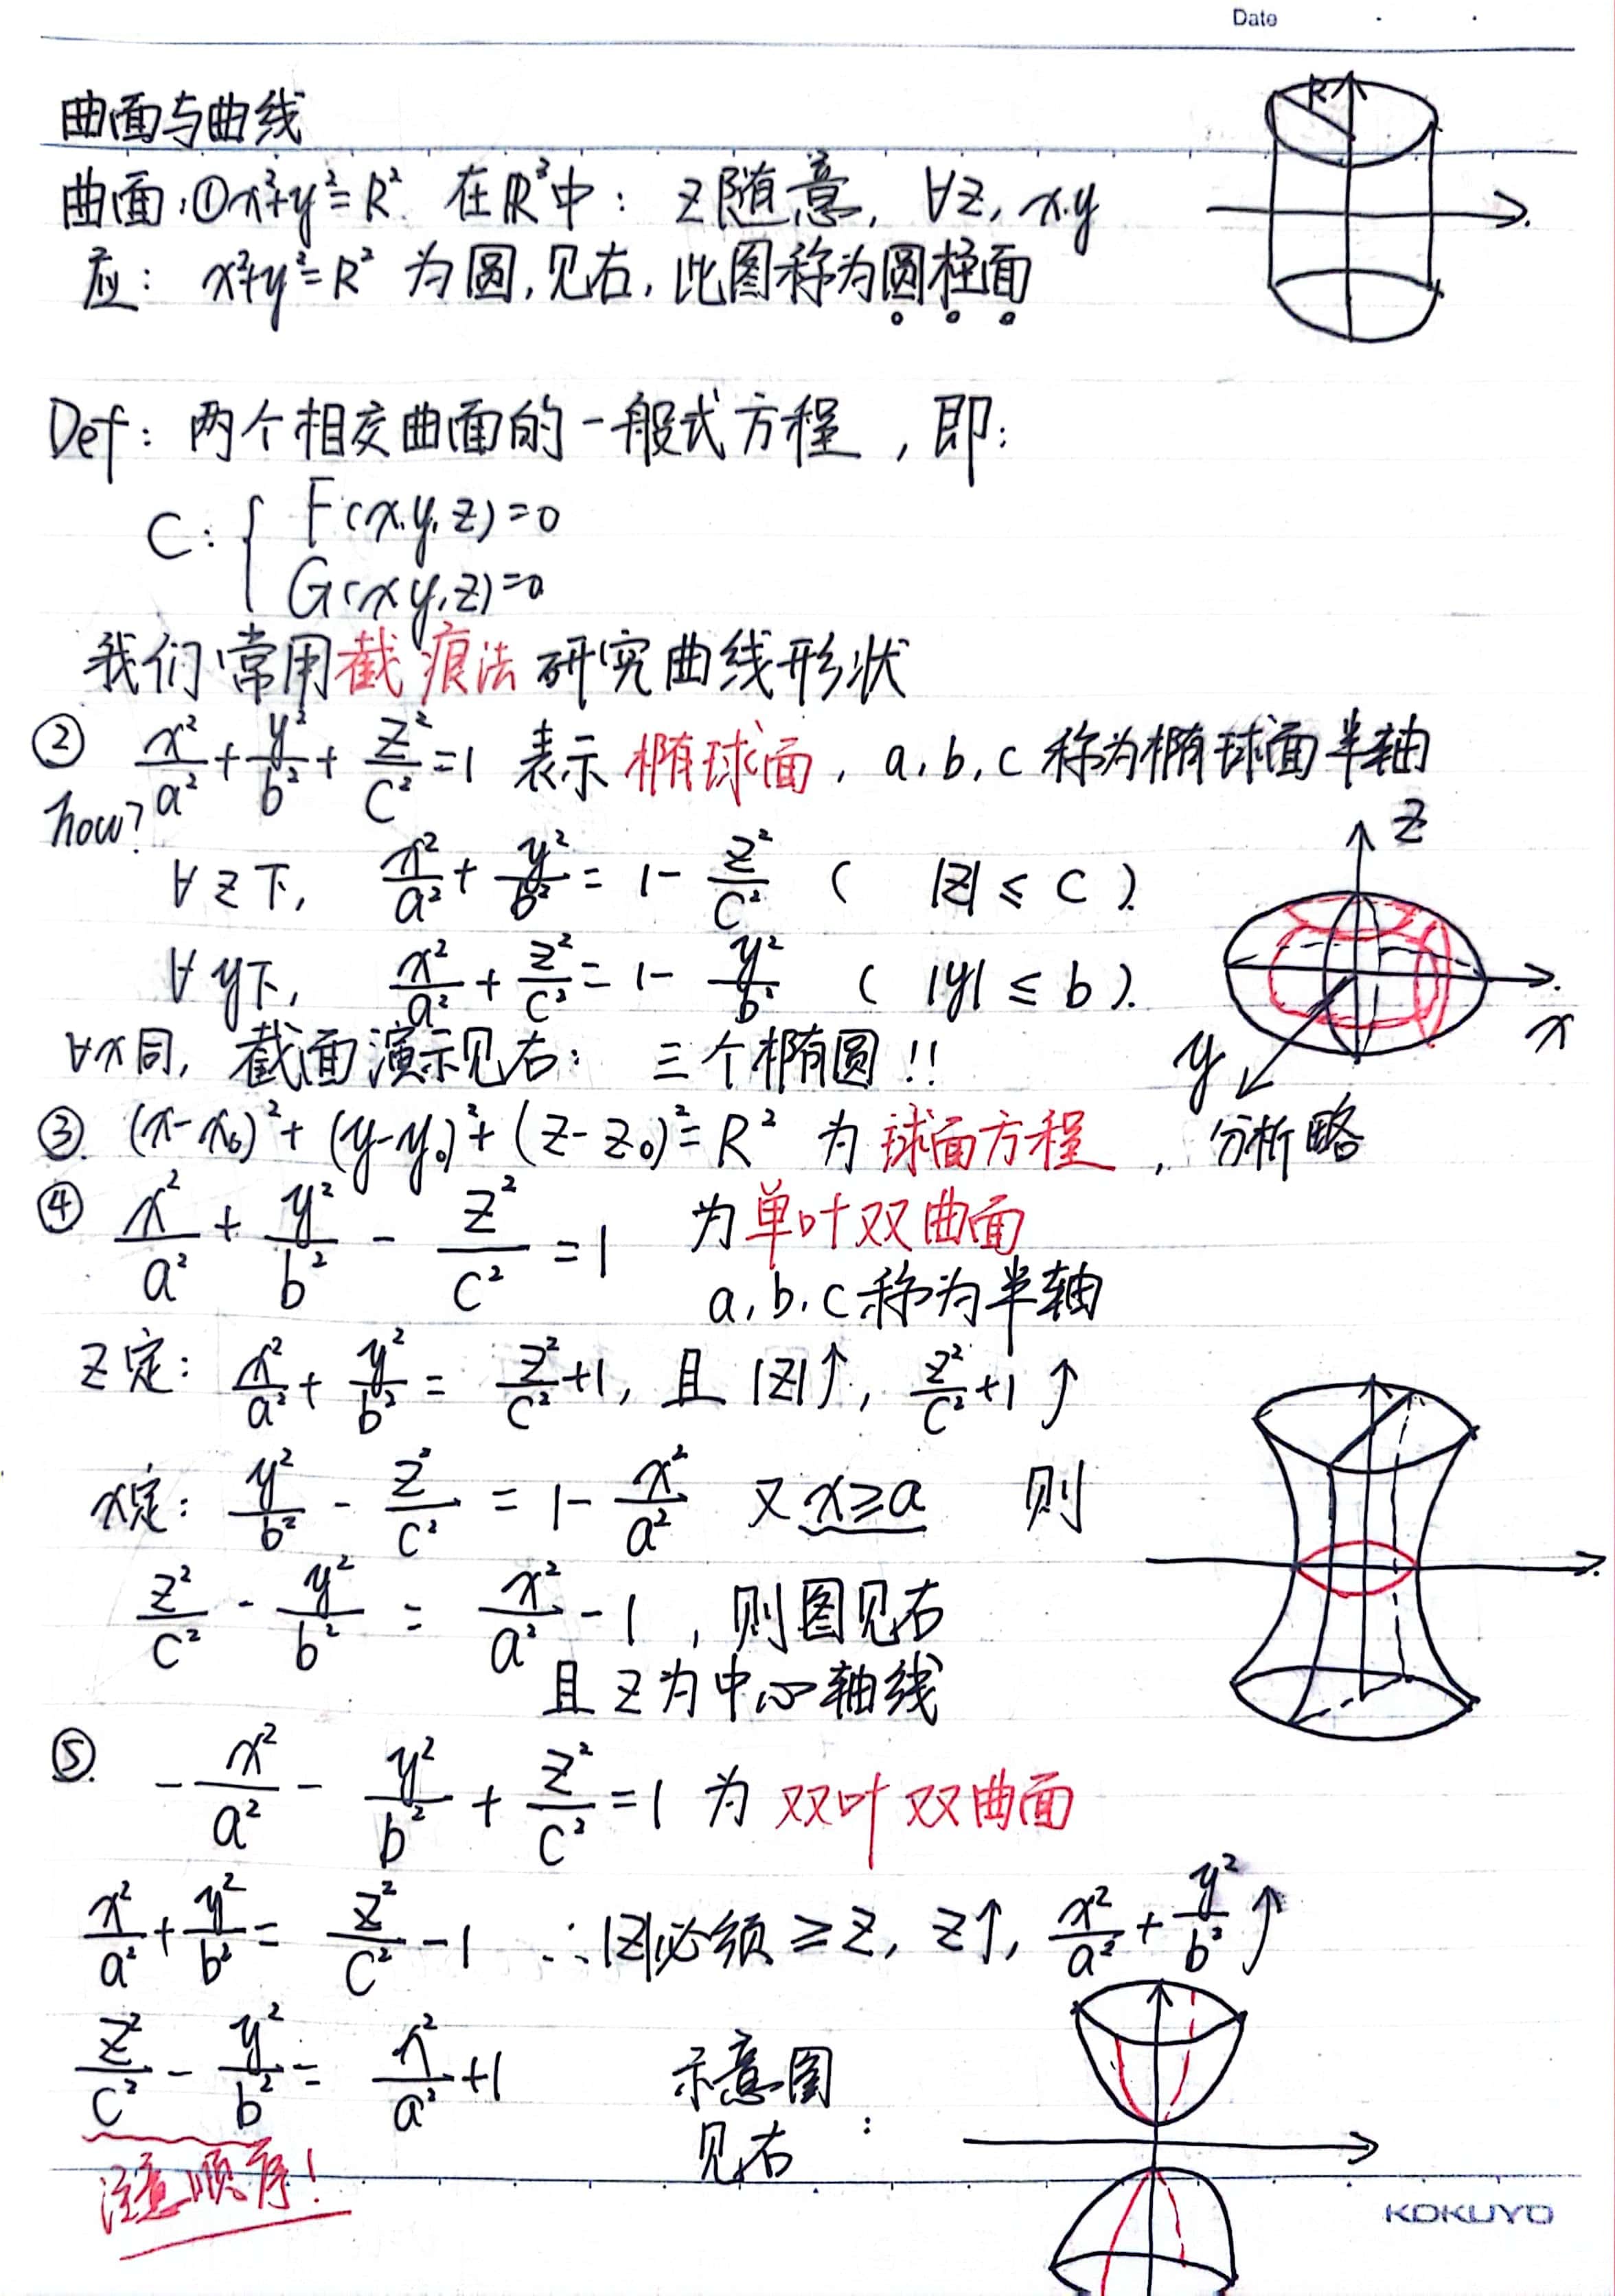 Date
曲面与曲线
曲面:①x²+y²=R². 在ℝ³中: z随意, ∀z, x.y
应: x²+y²=R² 为圆,见右,此图称为圆柱面
R
Def: 两个相交曲面的一般式方程,即:
C: { F(x,y,z)=0
G(x,y,z)=0
我们常用截痕法研究曲线形状
② x²/a² + y²/b² + z²/c² = 1 表示椭球面, a,b,c 称为椭球面半轴
how?
∀z下, x²/a² + y²/b² = 1 - z²/c² ( |z| ≤ c ).
∀y下, x²/a² + z²/c² = 1 - y²/b² ( |y| ≤ b ).
∀x同, 截面演示见右: 三个椭圆!!
z
x
y
③. (x-x₀)² + (y-y₀)² + (z-z₀)² = R² 为球面方程, 分析略
④ x²/a² + y²/b² - z²/c² = 1 为单叶双曲面
a,b,c称为半轴
z定: x²/a² + y²/b² = z²/c² + 1, 且 |z|↑, z²/c² + 1 ↑
x定: y²/b² - z²/c² = 1 - x²/a² 又 x≥a 则
z²/c² - y²/b² = x²/a² - 1, 则图见右
且 z 为中心轴线
⑤. -x²/a² - y²/b² + z²/c² = 1 为 双叶双曲面
x²/a² + y²/b² = z²/c² - 1 ∴|z|必须 ≥ z, z↑, x²/a² + y²/b² ↑
z²/c² - y²/b² = x²/a² + 1 示意图
见右:
注意顺序!
KOKUYO